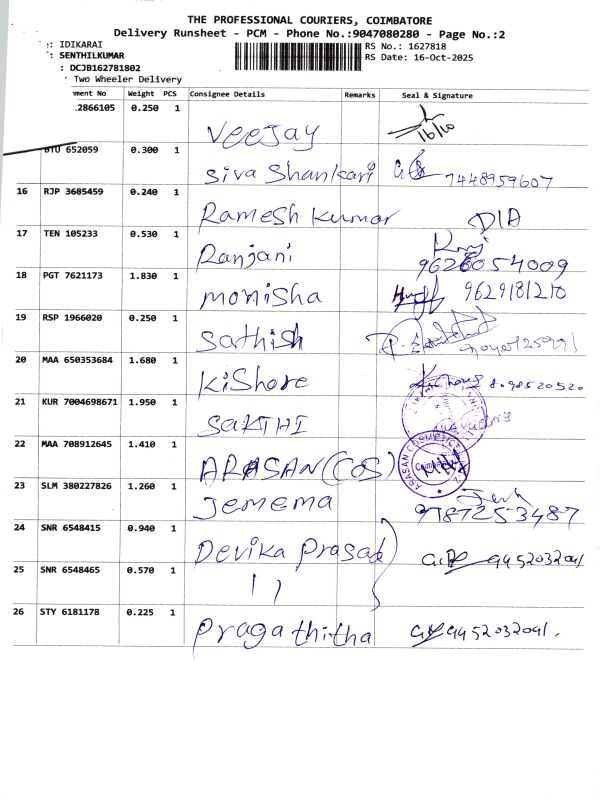 THE PROFESSIONAL COURIERS, COIMBATORE
Delivery Runsheet - PCM - Phone No.:9047080280 - Page No.:2
: IDIKARAI
: SENTHILKUMAR
: DCJB162781802
Two Wheeler Delivery
RS No.: 1627818
RS Date: 16-Oct-2025
ment No Weight PCS Consignee Details Remarks Seal & Signature
.2866105 0.250 1 Veejay 16/10
BTU 652059 0.300 1 Siva Shankari 7448959607
16 RJP 3685459 0.240 1 Ramesh Kumar DIA
17 TEN 105233 0.530 1 Ranjani 9628054009
18 PGT 7621173 1.830 1 monisha 9629181210
19 RSP 1966020 0.250 1 Sathish
20 MAA 650353684 1.680 1 Kishore
21 KUR 7004698671 1.950 1 SAKTHI
22 MAA 708912645 1.410 1 ARASAN (COS)
23 SLM 380227826 1.260 1 Jemema 9787253487
24 SNR 6548415 0.940 1 Devika Prasad 9952032041
25 SNR 6548465 0.570 1 11
26 STY 6181178 0.225 1 Pragathitha 9952032041.